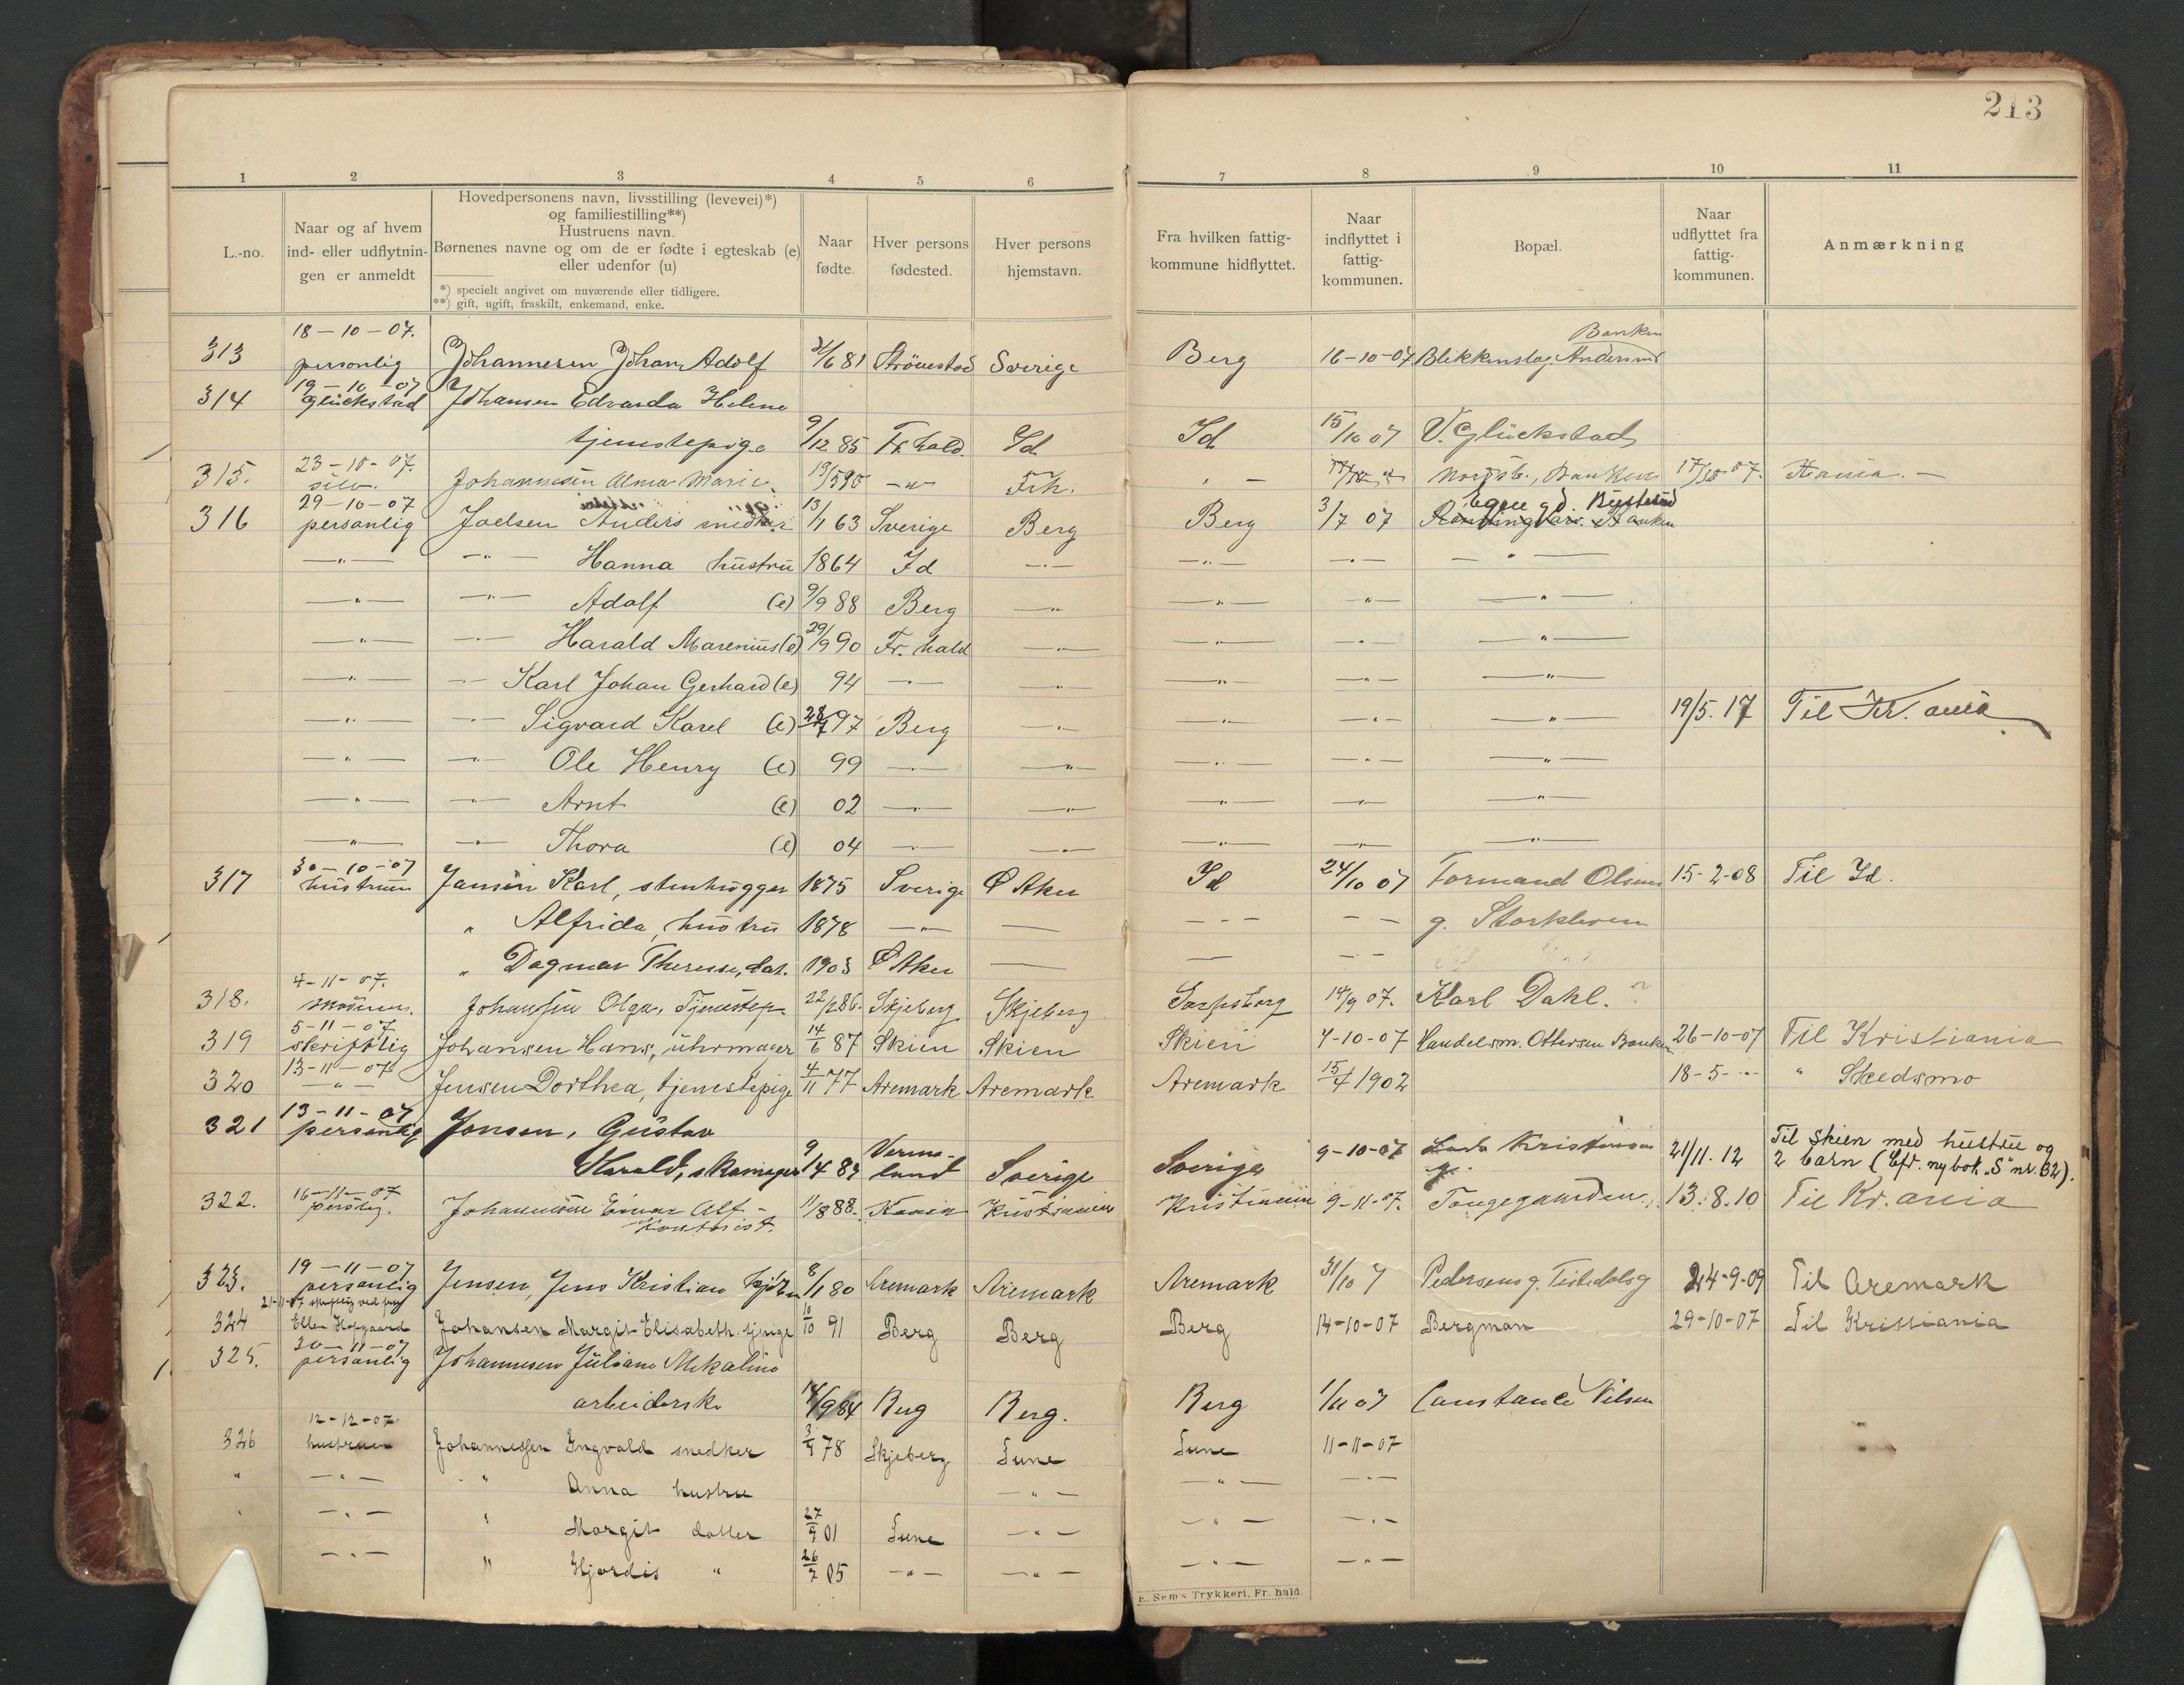 213
1 2 3 4 5 6 7 8 9 10 11
L.-no.
Naar og af hvem
ind- eller udflytnin-
gen er anmeldt
Hovedpersonens navn, livsstilling (levevei)*)
og familiestilling**)
Hustruens navn.
Børnenes navne og om de er fødte i egteskab (e)
eller udenfor (u)
*) specielt angivet om nuværende eller tidligere.
**) gift, ugift, fraskilt, enkemand, enke.
Naar
fødte.
Hver persons
fødested.
Hver persons
hjemstavn.
Fra hvilken fattig-
kommune hidflyttet.
Naar
indflyttet i
fattig-
kommunen.
Bopæl.
Naar
udflyttet fra
fattig-
kommunen.
Anmærkning
18-10-07. Banken
313 personlig Johannesen Johan Adolf /6 81 Strömstad Sverige Berg 16-10-07 Blikkenslag. Andersens
19-10-07
314 Glückstad Johansen Edvarda Helene
tjenestepige 9/12 85 Fr.hald Id Id 15/10 07 V. Glückstad
23-10-07.
315. Johannesen Alma Marie 19/5 90 -"- Frh. " - Banken 17/10 07. Kania. -
29-10-07 Egen gd.
316 personlig Joelsen Anders snedker 13/1 63 Sverige Berg Berg 3/7 07 Banken
-"- -"- Hanna hustru 1864 Id -"- -"- -"- -"-
-"- -"- Adolf (e) 9/9 88 Berg -"- -"- -"- -"-
-"- -"- Harald Marenius (e) 29/9 90 Fr. hald -"- -"- -"- -"-
-"- -"- Karl Johan Gerhard (e) 94 -"- -"- -"- -"- -"-
-"- -"- Sigvard Karel (e) 97 Berg -"- -"- -"- -"- 19/5. 17 Til Kr. ania
-"- -"- Ole Henry (e) 99 -"- -"- -"- -"- -"-
-"- -"- Arnt (e) 02 -"- -"- -"- -"- -"-
-"- -"- Thora (e) 04 -"- -"- -"- -"- -"-
30-10-07
317 hustruen Jansen Karl, stenhugger 1875 Sverige Ø Aker Id 24/10 07 Formand Olsens 15-2-08 Til Id.
" Alfrida, hustru 1878 -"- — - - - - - g.
" Dagmar Therese, dat. 1903 Ø Aker — — - - -
4-11-07.
318. Johansen Olga, Tjenestep. 22/2 86. Skjeberg Skjeberg Sarpsborg 14/9 07. Karl Dahl. ?
5-11-07
319 skriftlig Johansen Hans, uhrmager 14/6 87 Skien Skien Skien 7-10-07 Handelsm. Ottersen Banken 26-10-07 Til Kristiania
13-11-07
320 -"- Jensen Dorthea, tjenestepige 4/11 77 Aremark Aremark Aremark 15/4 1902 18-5- -"- " Skedsmo
13-11-07
321 personlig Jonsen, Gustav
Harald, skomager 9/4 87 Verme-
land Sverige Sverige 9-10-07 Kristensen g. 21/11. 12 Til Skien med hustru og
2 barn (Efr. ny bok „S" nr. 62).
16-11-07
322. perslig. Johannesen Einar Alf - 11/8 88. Kania Kristiania Kristiania 9-11-07. Tangegaarden. 13.8.10 Til Kr. ania
Kontorist.
19-11-07
323. personlig Jensen, Jens Kristian 8/1 80 Aremark Aremark Aremark 31/10 7 Pedersens g. Tistedalsg 24-9-09 Til Aremark
21-11-07 skriftlig ved frk
324 Ellen Hofgaard Johansen Margit Elisabeth tj.pige 10/10 91 Berg Berg Berg 14-10-07 Bergman 29-10-07 Til Kristiania
30-11-07
325. personlig Johannesen Juliane Mikaline
arbeiderske 14/9 84 Berg Berg. Berg 1/11 07 Constance Nilsen
12-12-07
326 hustruen Johannessen Ingvald snedker 3/9 78 Skjeberg Tune Tune 11-11-07
" -"- " Anna hustru -"- -"- -"-
" -"- " Margit datter 27/9 01 Tune -"- -"- -"-
-"- " Hjordis " 26/7 05 -"- -"- -"- -"-
E. Sem's Trykkeri, Fr. hald.